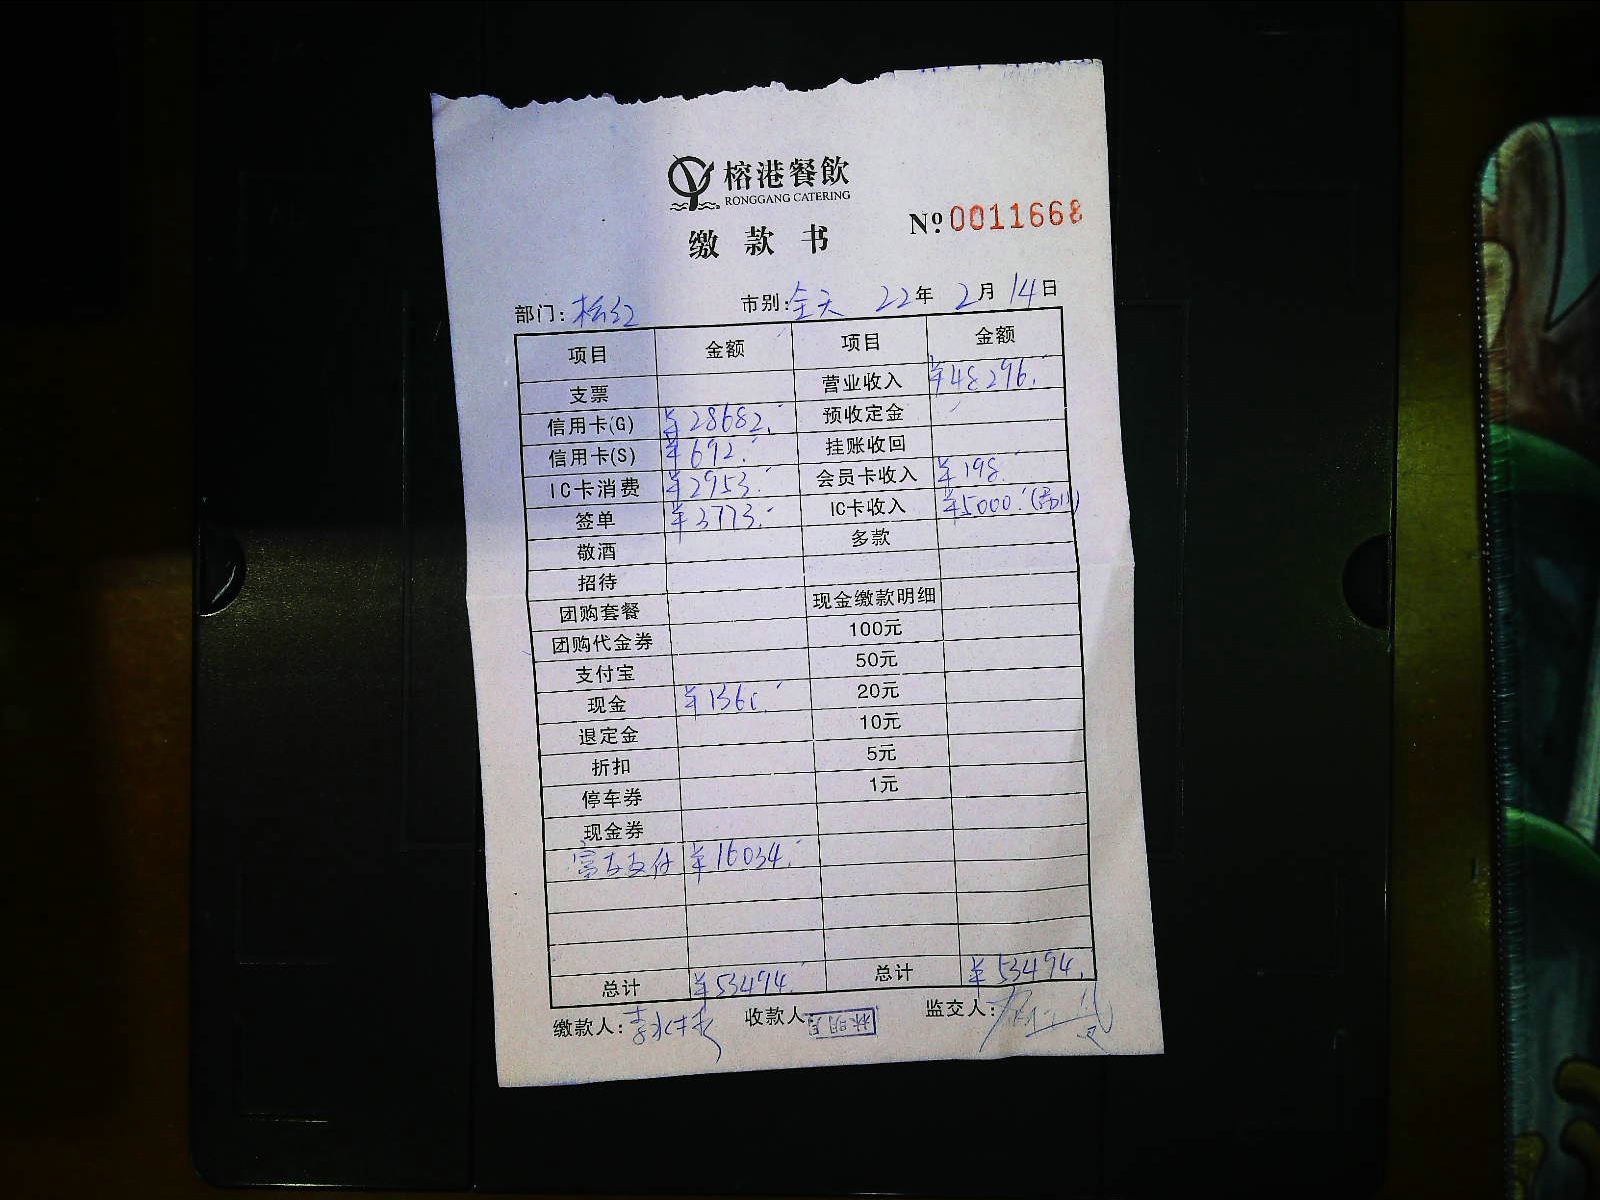 榕港餐飲
RONGGANG CATERING
缴款书 No.0011668
部门: 市别:全天 22年 2月 14日
项目 金额 项目 金额
支票 营业收入 ¥48296.
信用卡(G) ¥28682. 预收定金
信用卡(S) ¥692. 挂账收回
IC卡消费 ¥2953. 会员卡收入 ¥198.
签单 ¥3773. IC卡收入 ¥5000.
敬酒 多款
招待
团购套餐 现金缴款明细
团购代金券 100元
支付宝 50元
现金 ¥1360. 20元
退定金 10元
折扣 5元
停车券 1元
现金券
富友支付 ¥16034.
总计 ¥53494. 总计 ¥53494.
缴款人: 收款人: 监交人: